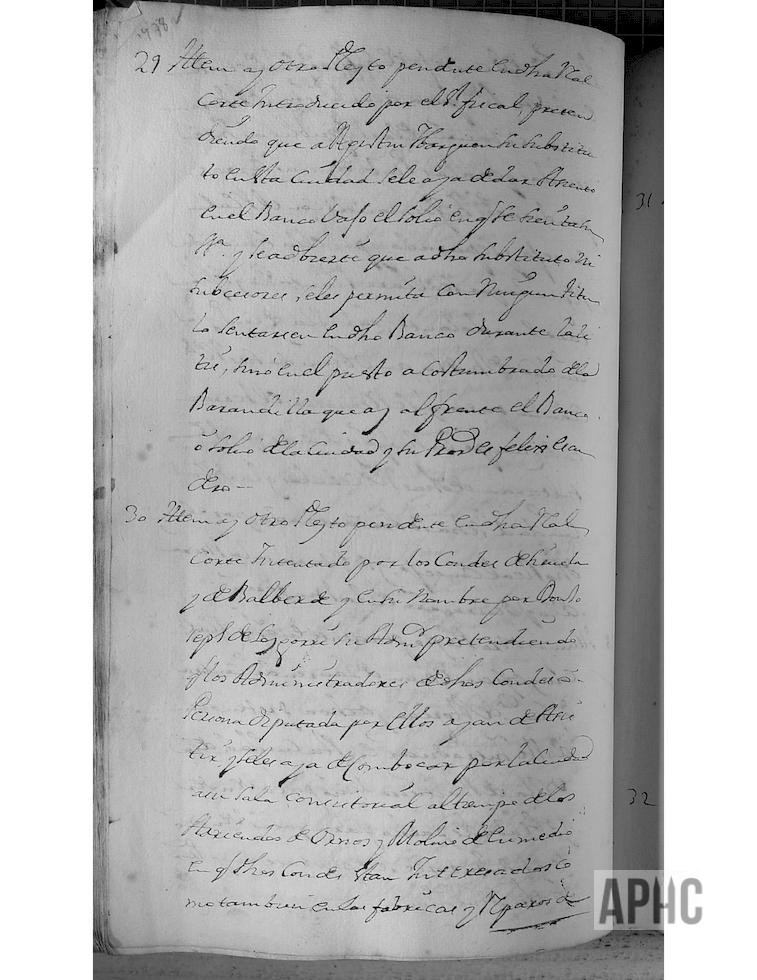 29 Ittem ay otro Pleyto pendente en dha Real
Corte Introducido por el Sr. fiscal, preten
diendo que a Agustin Ybarguen su substitu
to en esta Ciudad se le aya de dar Asiento
en el Banco vajo el solio en q se sientan
y se adbierte que a dho substituto ni
subcesores, se les permita con Ningun titu
lo sentarse en dho Banco durante
sino en el puesto acostumbrado de la
Barandilla que ay al frente el Banco
o solio de la Ciudad y su Pror. es felix
30 Ittem ay otro Pleyto pendente en dha Real
Corte Intentado por los Condes de
y de Balberde y en su Nombre por Don Jo
seph de su Admor. pretendiendo
q los Administradores de dhos Condes o
Persona Diputada por ellos ayan de Asis
tir y se les aya de Combocar por la Ciudad
a su sala consistorial al tiempo de los
Arriendos de Ornos y Molino de en medio
en q dhos Condes estan Interesados co
mo tambien en las fabricas y Reparos de
31
32
APHC